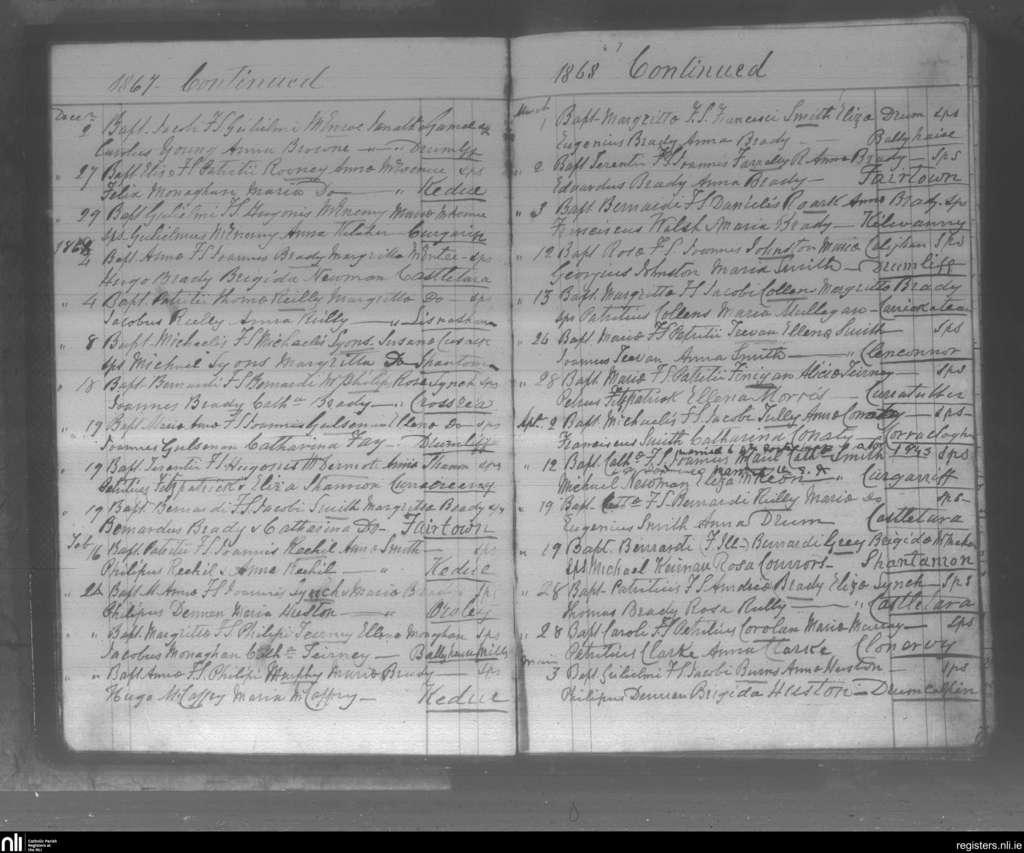 1867. Continued
Decr
2 Bapt. Jacob FS Gulielmi Janatt Gamel sps
Carolus Young Anna Browne Drumliff
" 27 Bapt Elis FS Patritii Rooney Anna sps
Felix Monaghan Maria Do Kedue
" 29 Bapt Gulielmi FS Hugonis McEnemy Maria
sps Gulielmus McEnemy Anna Curgariff
1868
4 Bapt Anna FS Joannis Brady Margritta sps
Hugo Brady Brigida Newman Castletara
" 4 Bapt. Patritii Thoma Reilly Margritta Do sps
Jacobus Reilly Anna Reilly " Lisnashan
" 8 Bapt Michaelis FS Michaelis Lyons Susana
sps Michael Lyons Margritta Do Shantom
" 18 Bapt Bernardi FS Bernardi McPhilip Rose Lynch sps
Joannes Brady Cath Brady " Crossrea
" 19 Bapt Maria Anna FS Joannis Gulsonan Do sps
Joannes Gulsonan Catharina Fay Drumliff
" 19 Bapt Terentii FS Hugonis McDermott Anna sps
Patritius Fitzpatrick & Eliza Shannon
" 19 Bapt Bernardi FS Jacobi Smith Margritta Brady sps
Bernardus Brady & Catharina Do Fairtown
Feb
16 Bapt Patritii FS Joannis Keehil Anna Smith sps
Philipus Keehil & Anna Keehil " Kedue
" 22 Bapt M. Anna FS Joannis Lynch & Maria Brady Sps
Philipus Dennan Maria Heeston
" " Bapt Margritta FS Philipi Teirney Ellena Monghan sps
Jacobus Monaghan Cath Teirney Ballyhaise Mills
" " Bapt Anna FS Philipi Murphy Maria Brady sps
Hugo McCaffry Maria McCaffry Kedue
1868 Continued
March
1 Bapt Margritta F.S. Francisci Smith Eliza Drum sps
Eugenius Brady Anna Brady Ballyhaise
" 2 Bapt Terentii FS Joannis Farrelly R. Anna Brady Sps
Edvardus Brady Anna Brady Fairtown
" 3 Bapt Bernardi FS Danielis Roark Anna Brady sps
Franciscus Walsh Maria Brady Kilivanny
" 12 Bapt Rosa F.S. Joannis Johnston Maria Calghan Sps
Georgius Johnston Maria Smith Drumliff
" 13 Bapt Margritta FS Jacobi Collens Margritta Brady
sps Patritius Collens Maria Mullegan
" 26 Bapt Maria FS Patritii Teevan Ellena Smith sps
Joannes Teevan Anna Smith " Clenconnor
" 28 Bapt Maria FS Patritii Finigan Alicia Tierney sps
Petrus Fitzpatrick Ellena Morres
Apl. 2 Bapt. Michaelis FS Jacobi Tully Anna Conaty sps
Franciscus Smith Catharina Conaty
" 12 Bapt. Cath FS Joannis Maria Smith 1923 sps
Michael Newman Eliza McKeon " Curgarriff
" 19 Bapt FS Bernardi Reilly Maria Do sps
Eugenius Smith Anna Drum Castletara
" 19 Bapt. Bernardi F Ill. Bernardi Grey Brigida
sps Michael Rosa Connors Shantamon
" 28 Bapt. Patritius FS Andrea Brady Eliza Lynch Sps
Thomas Brady Rosa Reilly " Castletara
" 28 Bapt Caroli FS Patritius Corolan Maria Murray sps
Patritius Clarke Anna Clarke Clonervy
3 Bapt. Gulielmi FS Jacobi Burns Anna Heeston sps
Philipus Dennan Brigida Heeston Drumcalpin
nli
Catholic Parish
Registers at
the NLI
registers.nli.ie